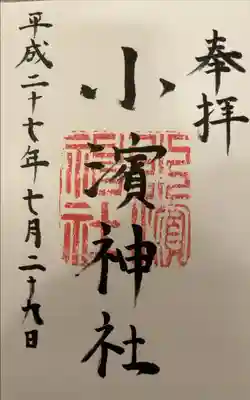 奉拝
小濱神社
平成二十七年七月二十九日